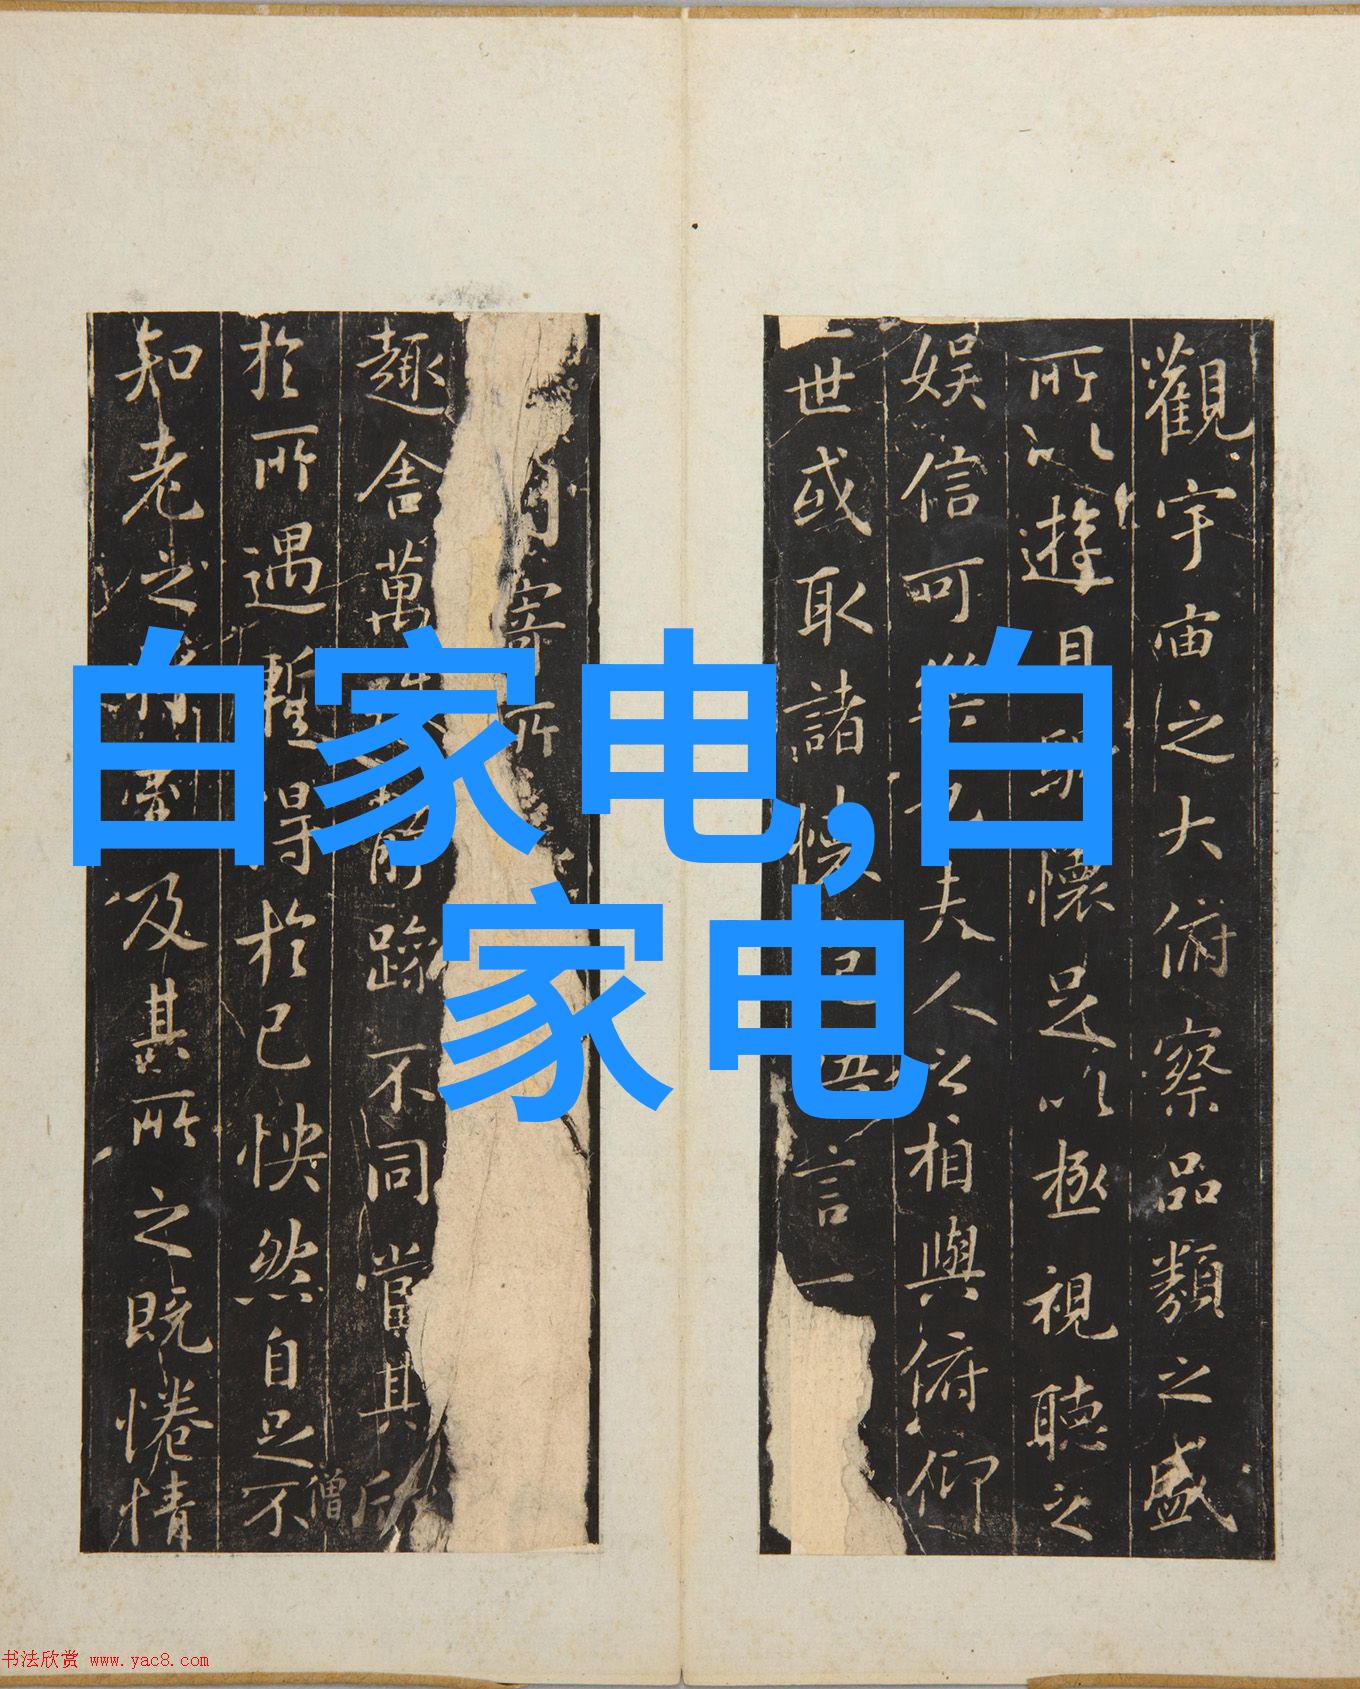 白家电,白
家电
觀宇宙之大俯察品類之盛
所以遊目騁懷足以極視聽之
娛信可樂也夫人之相與俯仰
世或取諸懷抱悟言一
寄所
趣舍萬殊靜躁不同當其欣
於所遇暫得於己怏然自足不
僧
知老之將至及其所之既惓情
书法欣赏 www.yac8.com